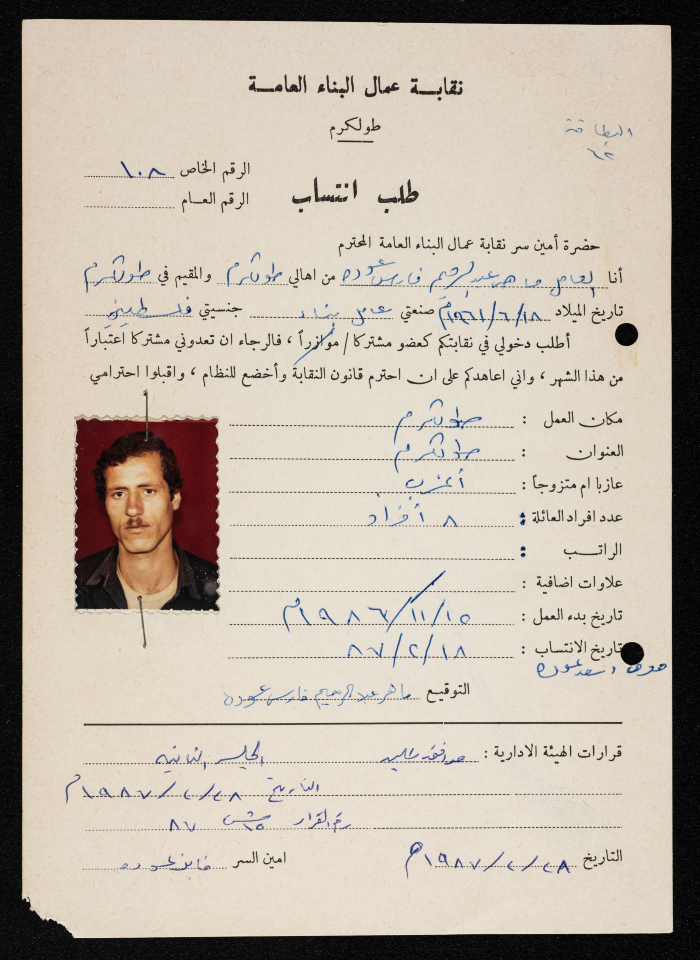 نقابة عمال البناء العامة
طولكرم
البطاقة
٦٢
الرقم الخاص ١٠٨
الرقم العام
طلب انتساب
حضرة أمين سر نقابة عمال البناء العامة المحترم
أنا العامل ماهر عبد الرحيم فارس عوده من اهالي طولكرم والمقيم في طولكرم
تاريخ الميلاد ١٩٦١/٦/١٨م صنعتي عامل بناء جنسيتي فلسطيني
أطلب دخولي في نقابتكم كعضو مشتركا / موازراً ، فالرجاء ان تعدوني مشتركا اعتباراً
من هذا الشهر ، واني اعاهدكم على ان احترم قانون النقابة وأخضع للنظام ، واقبلوا احترامي
مكان العمل : طولكرم
العنوان : طولكرم
عازبا ام متزوجاً : أعزب
عدد افراد العائلة : ٨ أفراد
الراتب :
علاوات اضافية :
تاريخ بدء العمل : ١٩٨٦/١١/١٥م
تاريخ الانتساب : ٨٧/٢/١٨
اسعد عوده
التوقيع ماهر عبد الرحيم فارس عوده
قرارات الهيئة الادارية : الجلسه الثانيه
التاريخ ١٩٨٧/٢/٢٨م
رقم القرار ١٥ ٨٧
التاريخ ١٩٨٧/٢/٢٨م امين السر عوده